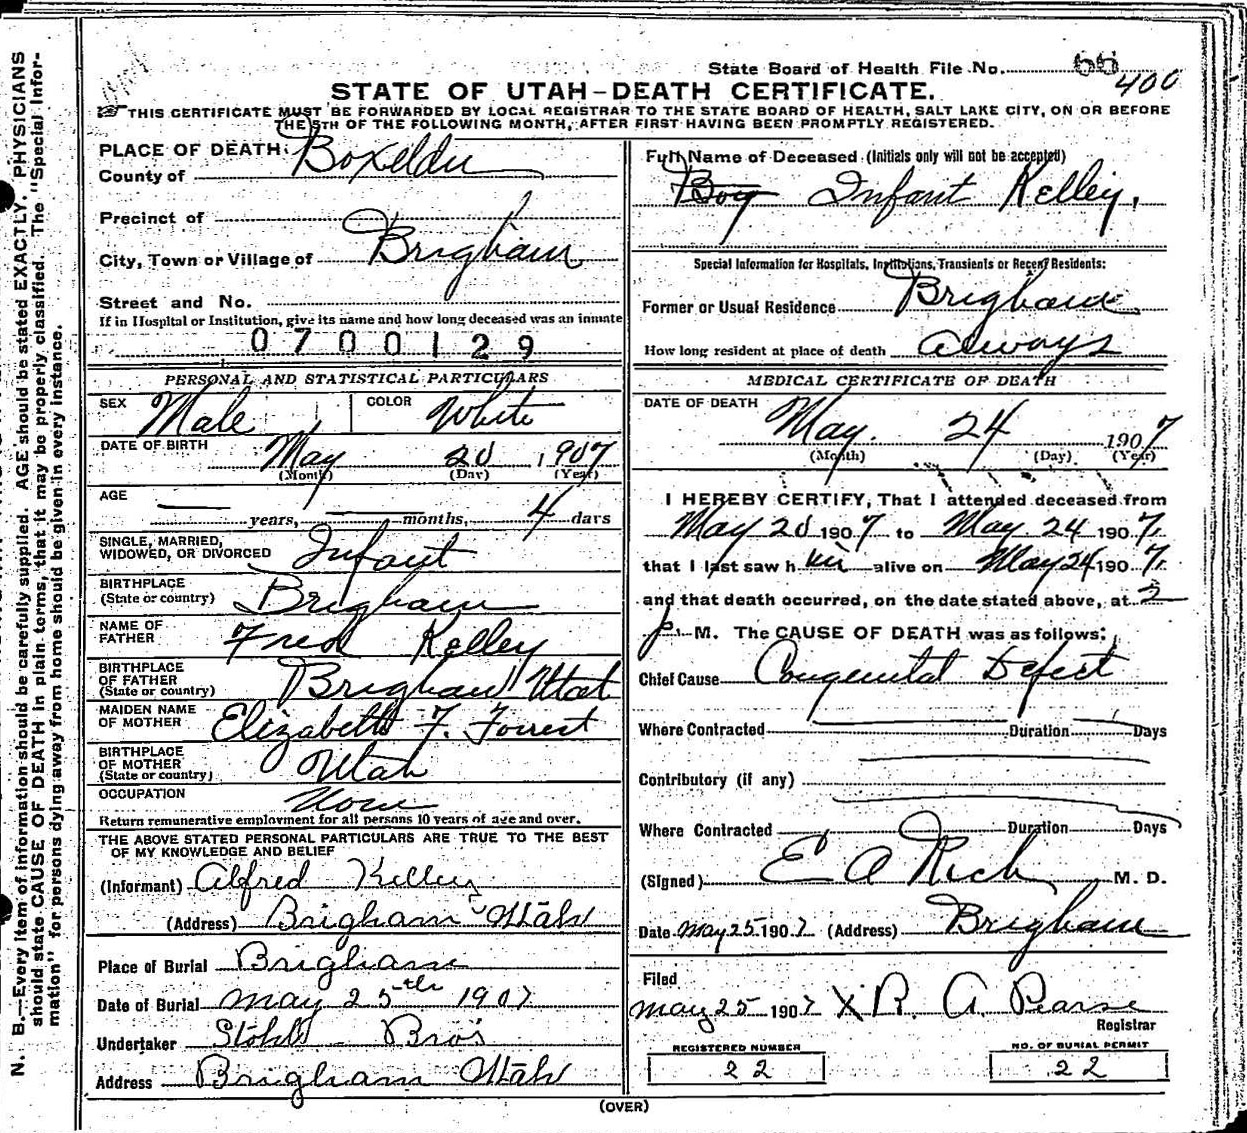 State Board of Health File No. 66
400
STATE OF UTAH—DEATH CERTIFICATE.
THIS CERTIFICATE MUST BE FORWARDED BY LOCAL REGISTRAR TO THE STATE BOARD OF HEALTH, SALT LAKE CITY, ON OR BEFORE
THE 5TH OF THE FOLLOWING MONTH, AFTER FIRST HAVING BEEN PROMPTLY REGISTERED.
N. B.—Every item of information should be carefully supplied. AGE should be stated EXACTLY. PHYSICIANS
should state CAUSE OF DEATH in plain terms, that it may be properly classified. The "Special Infor-
mation" for persons dying away from home should be given in every instance.
PLACE OF DEATH:
County of Boxelder
Precinct of
City, Town or Village of Brigham
Street and No.
If in Hospital or Institution, give its name and how long deceased was an inmate
0700129
PERSONAL AND STATISTICAL PARTICULARS
SEX Male COLOR White
DATE OF BIRTH May 20, 1907
(Month) (Day) (Year)
AGE
— years, — months, 4 days
SINGLE, MARRIED,
WIDOWED, OR DIVORCED Infant
BIRTHPLACE
(State or country) Brigham
NAME OF
FATHER Fred Kelley
BIRTHPLACE
OF FATHER
(State or country) Brigham Utah
MAIDEN NAME
OF MOTHER Elizabeth F. Forrest
BIRTHPLACE
OF MOTHER
(State or country) Utah
OCCUPATION None
Return remunerative employment for all persons 10 years of age and over.
THE ABOVE STATED PERSONAL PARTICULARS ARE TRUE TO THE BEST
OF MY KNOWLEDGE AND BELIEF
(Informant) Alfred Kelley
(Address) Brigham Utah
Place of Burial Brigham
Date of Burial May 25th 1907
Undertaker Stohl Bros
Address Brigham Utah
Full Name of Deceased (Initials only will not be accepted)
Boy Infant Kelley.
Special Information for Hospitals, Institutions, Transients or Recent Residents:
Former or Usual Residence Brigham
How long resident at place of death Always
MEDICAL CERTIFICATE OF DEATH
DATE OF DEATH
May. 24 1907
(Month) (Day) (Year)
I HEREBY CERTIFY, That I attended deceased from
May 20 1907 to May 24 1907,
that I last saw him alive on May 24 1907,
and that death occurred, on the date stated above, at 3
p. M. The CAUSE OF DEATH was as follows:
Chief Cause Congenital Defect
Where Contracted Duration Days
Contributory (if any)
Where Contracted Duration Days
(Signed) E A Rich M. D.
Date May 25 1907 (Address) Brigham
Filed
May 25 1907 X R. A. Pearse
Registrar
REGISTERED NUMBER
22
NO. OF BURIAL PERMIT
22
(OVER)